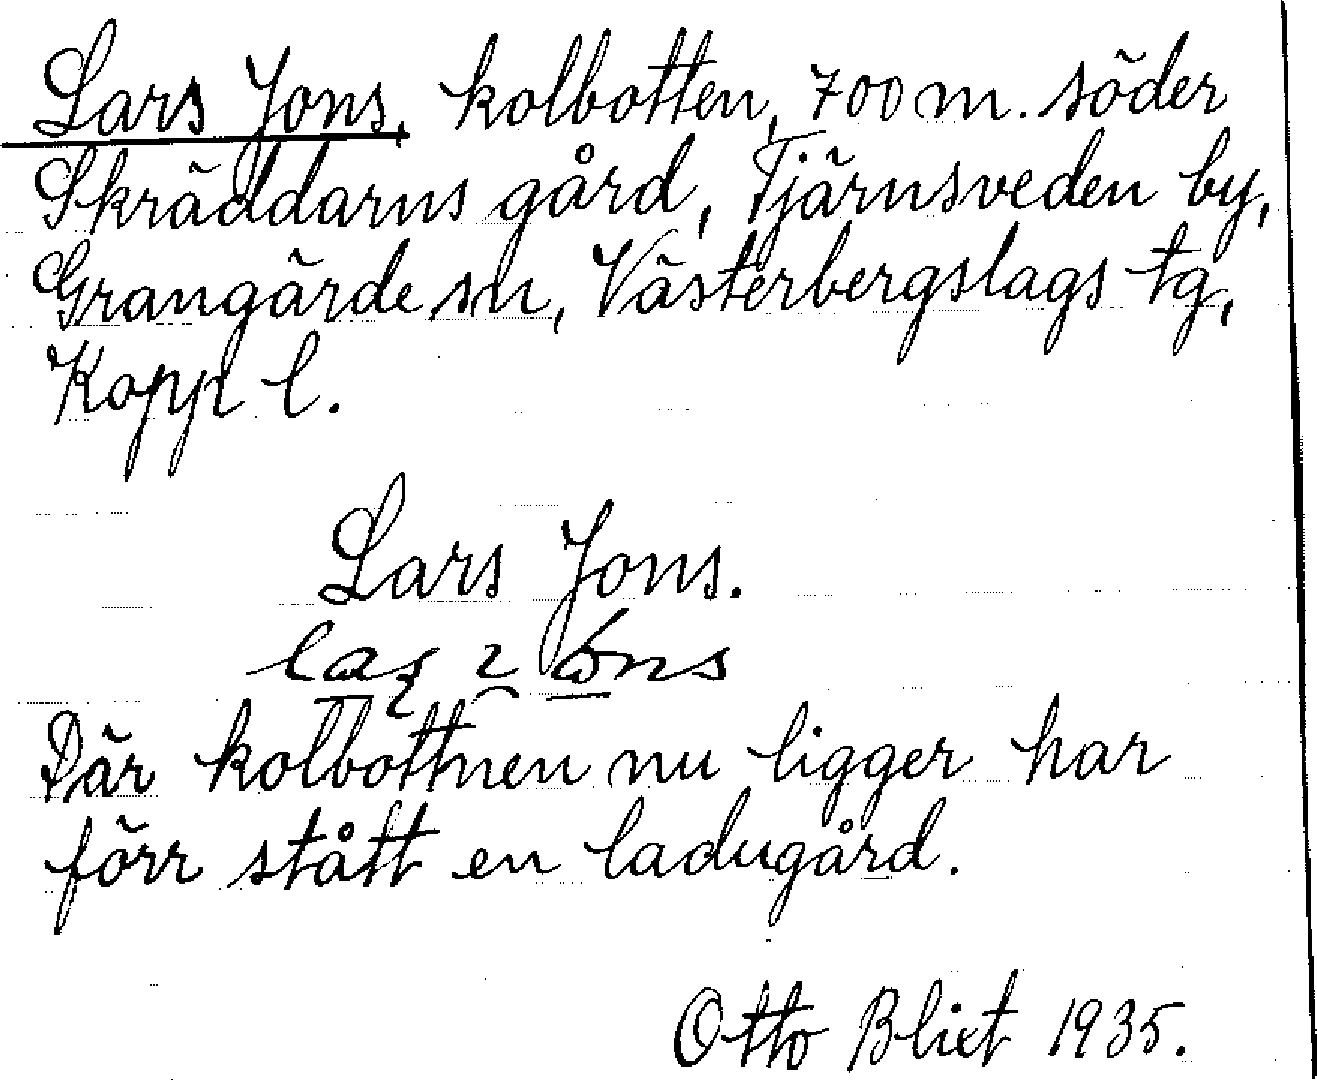 Lars Jons, kolbotten, 700 m. söder
Skräddarns gård, Tjärnsveden by,
Grangärde sn, Västerbergslags tg,
Kopp l.
Lars Jons.
Där kolbottnen nu ligger har
förr stått en ladugård.
Otto Blixt 1935.